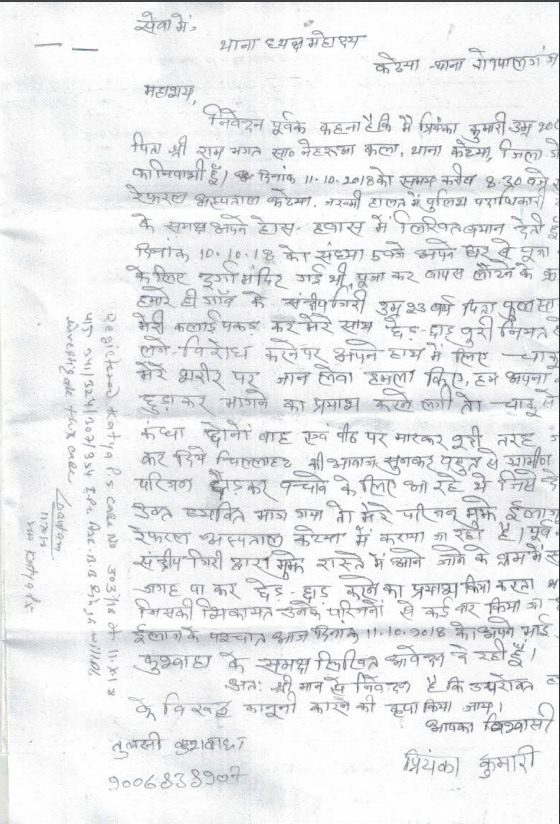 सेवा में,
थाना ध्यक्ष महोदय
कटेया थाना गोपालगंज
महाशय,
निवेदन पूर्वक कहना है कि मैं प्रियंका कुमारी उम्र 20
पिता श्री राम भगत सा० नेहरूआ कला, थाना कटेया, जिला
का निवासी हूँ। दिनांक 11.10.2018 को समय करीब 8.30 बजे
रेफरल अस्पताल कटेया, जख्मी हालत में पुलिस पदाधिकारी
के समक्ष अपने होस-हवास में लिखित बयान देती
दिनांक 10.10.18 को संध्या 5 बजे अपने घर से पूजा
के लिए दुर्गा मंदिर गई थी, पूजा कर वापस लौटने के
हमारे ही गाँव के संदीप गिरी उम्र 23 वर्ष पिता
मेरी कलाई पकड़ कर मेरे साथ छेड़-छाड़ बुरी नियत
लगे। विरोध करने पर अपने हाथ में लिए चाकू
मेरे शरीर पर जान लेवा हमला किए, हम अपना
छुड़ा कर भागने का प्रयास करने लगी तो चाकू
कंधा दोनों बाह एवं पीठ पर मारकर बुरी तरह
कर दिये चिल्लाहट की आवाज सुनकर बहुत से ग्रामीण
परिजन दौड़ कर बचाने के लिए आ रहे थे जिसे
उक्त व्यक्ति भाग गया तो मेरे परिजन मुझे ईलाज
रेफरल अस्पताल कटेया में कराया जा रही है।
संदीप गिरी द्वारा मुझे रास्ते में आने जाने के क्रम में
जगह पा कर छेड़-छाड़ करने का प्रयास किया करता
जिसकी शिकायत उनके परिजनों से कई बार किया
ईलाज के पश्चात आज दिनांक 11.10.2018 को अपने भाई
कुशवाहा के समक्ष लिखित आवेदन दे रही हूँ।
अतः श्री मान से निवेदन है कि उपरोक्त
के विरूद्ध कानूनी कारवाई की कृपा किया जाय।
आपका विश्वासी
प्रियंका कुमारी
तुलसी कुशवाहा
9006838907
Registered Katiya P.S Case No 303/18 dt 11.10.18
U/S 341/324/307/354 IPC ASI B.B Singh will
investigate this case